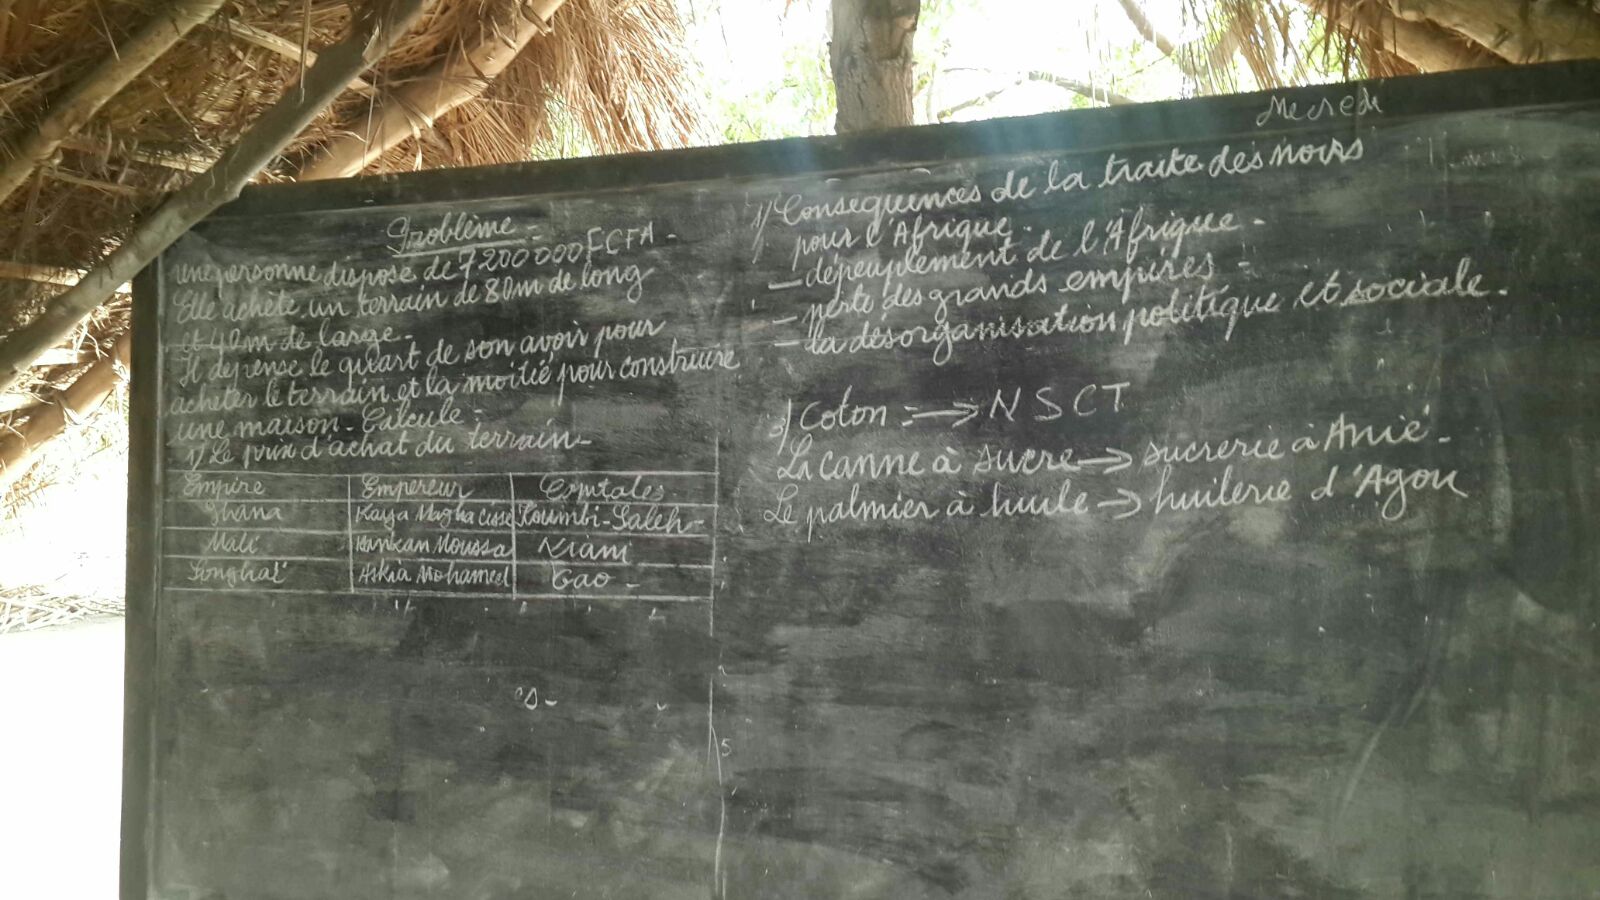 Mecredi
Problème -
une personne dispose de 7200000FCFA -
Elle achète un terrain de 80m de long
et 40m de large -
Il dépense le quart de son avoir pour
acheter le terrain et la moitié pour construire
une maison - Calcule -
1) Le prix d'achat du terrain -
Empire Empereur Capitales
Ghana Kaya Magha Cissé Koumbi-Saleh-
Mali Kankan Moussa Niani
Songhaï Askia Mohamed Gao -
's-
5
1) Conséquences de la traite des noirs
pour l'Afrique -
- dépeuplement de l'Afrique -
- perte des grands empires -
- la désorganisation politique et sociale -
3) Coton : → NSCT
La canne à sucre → sucrerie à Anié -
Le palmier à huile → huilerie d'Agou